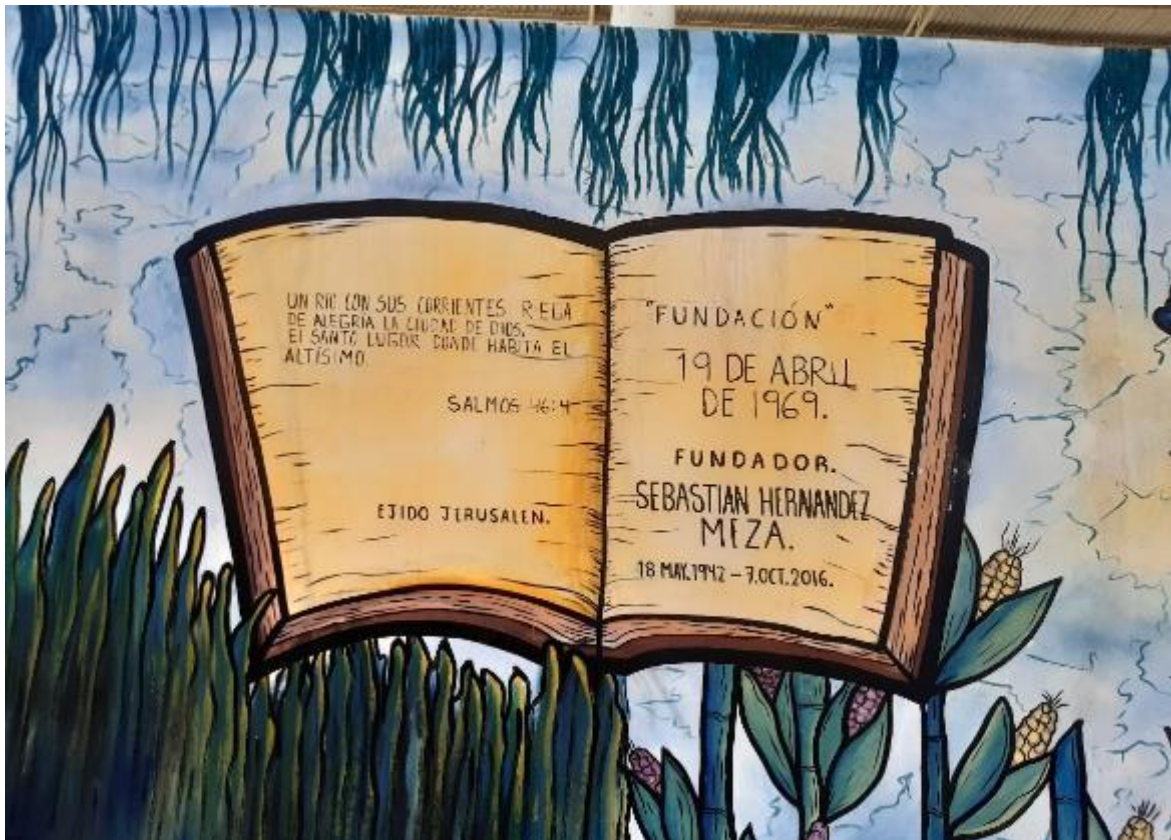 UN RIO CON SUS CORRIENTES RIEGA
DE ALEGRIA LA CIUDAD DE DIOS,
El SANTO LUGOR DONDE HABITA EL
ALTÍSIMO.
SALMOS 46:4
EJIDO JERUSALEN.
"FUNDACIÓN"
19 DE ABRIL
DE 1969.
FUNDADOR.
SEBASTIAN HERNANDEZ
MEZA.
18 MAY.1942 – 7.OCT.2016.